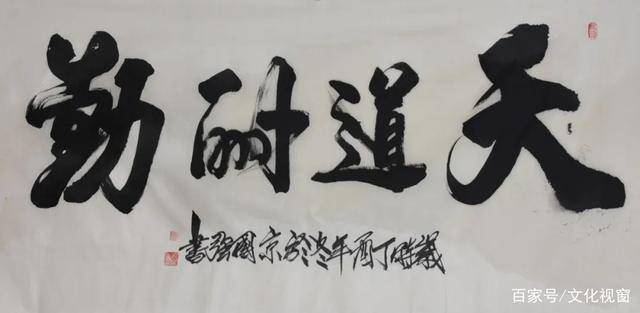 天道酬勤
歲時丁酉年冬於京國强書
百家号/文化视窗